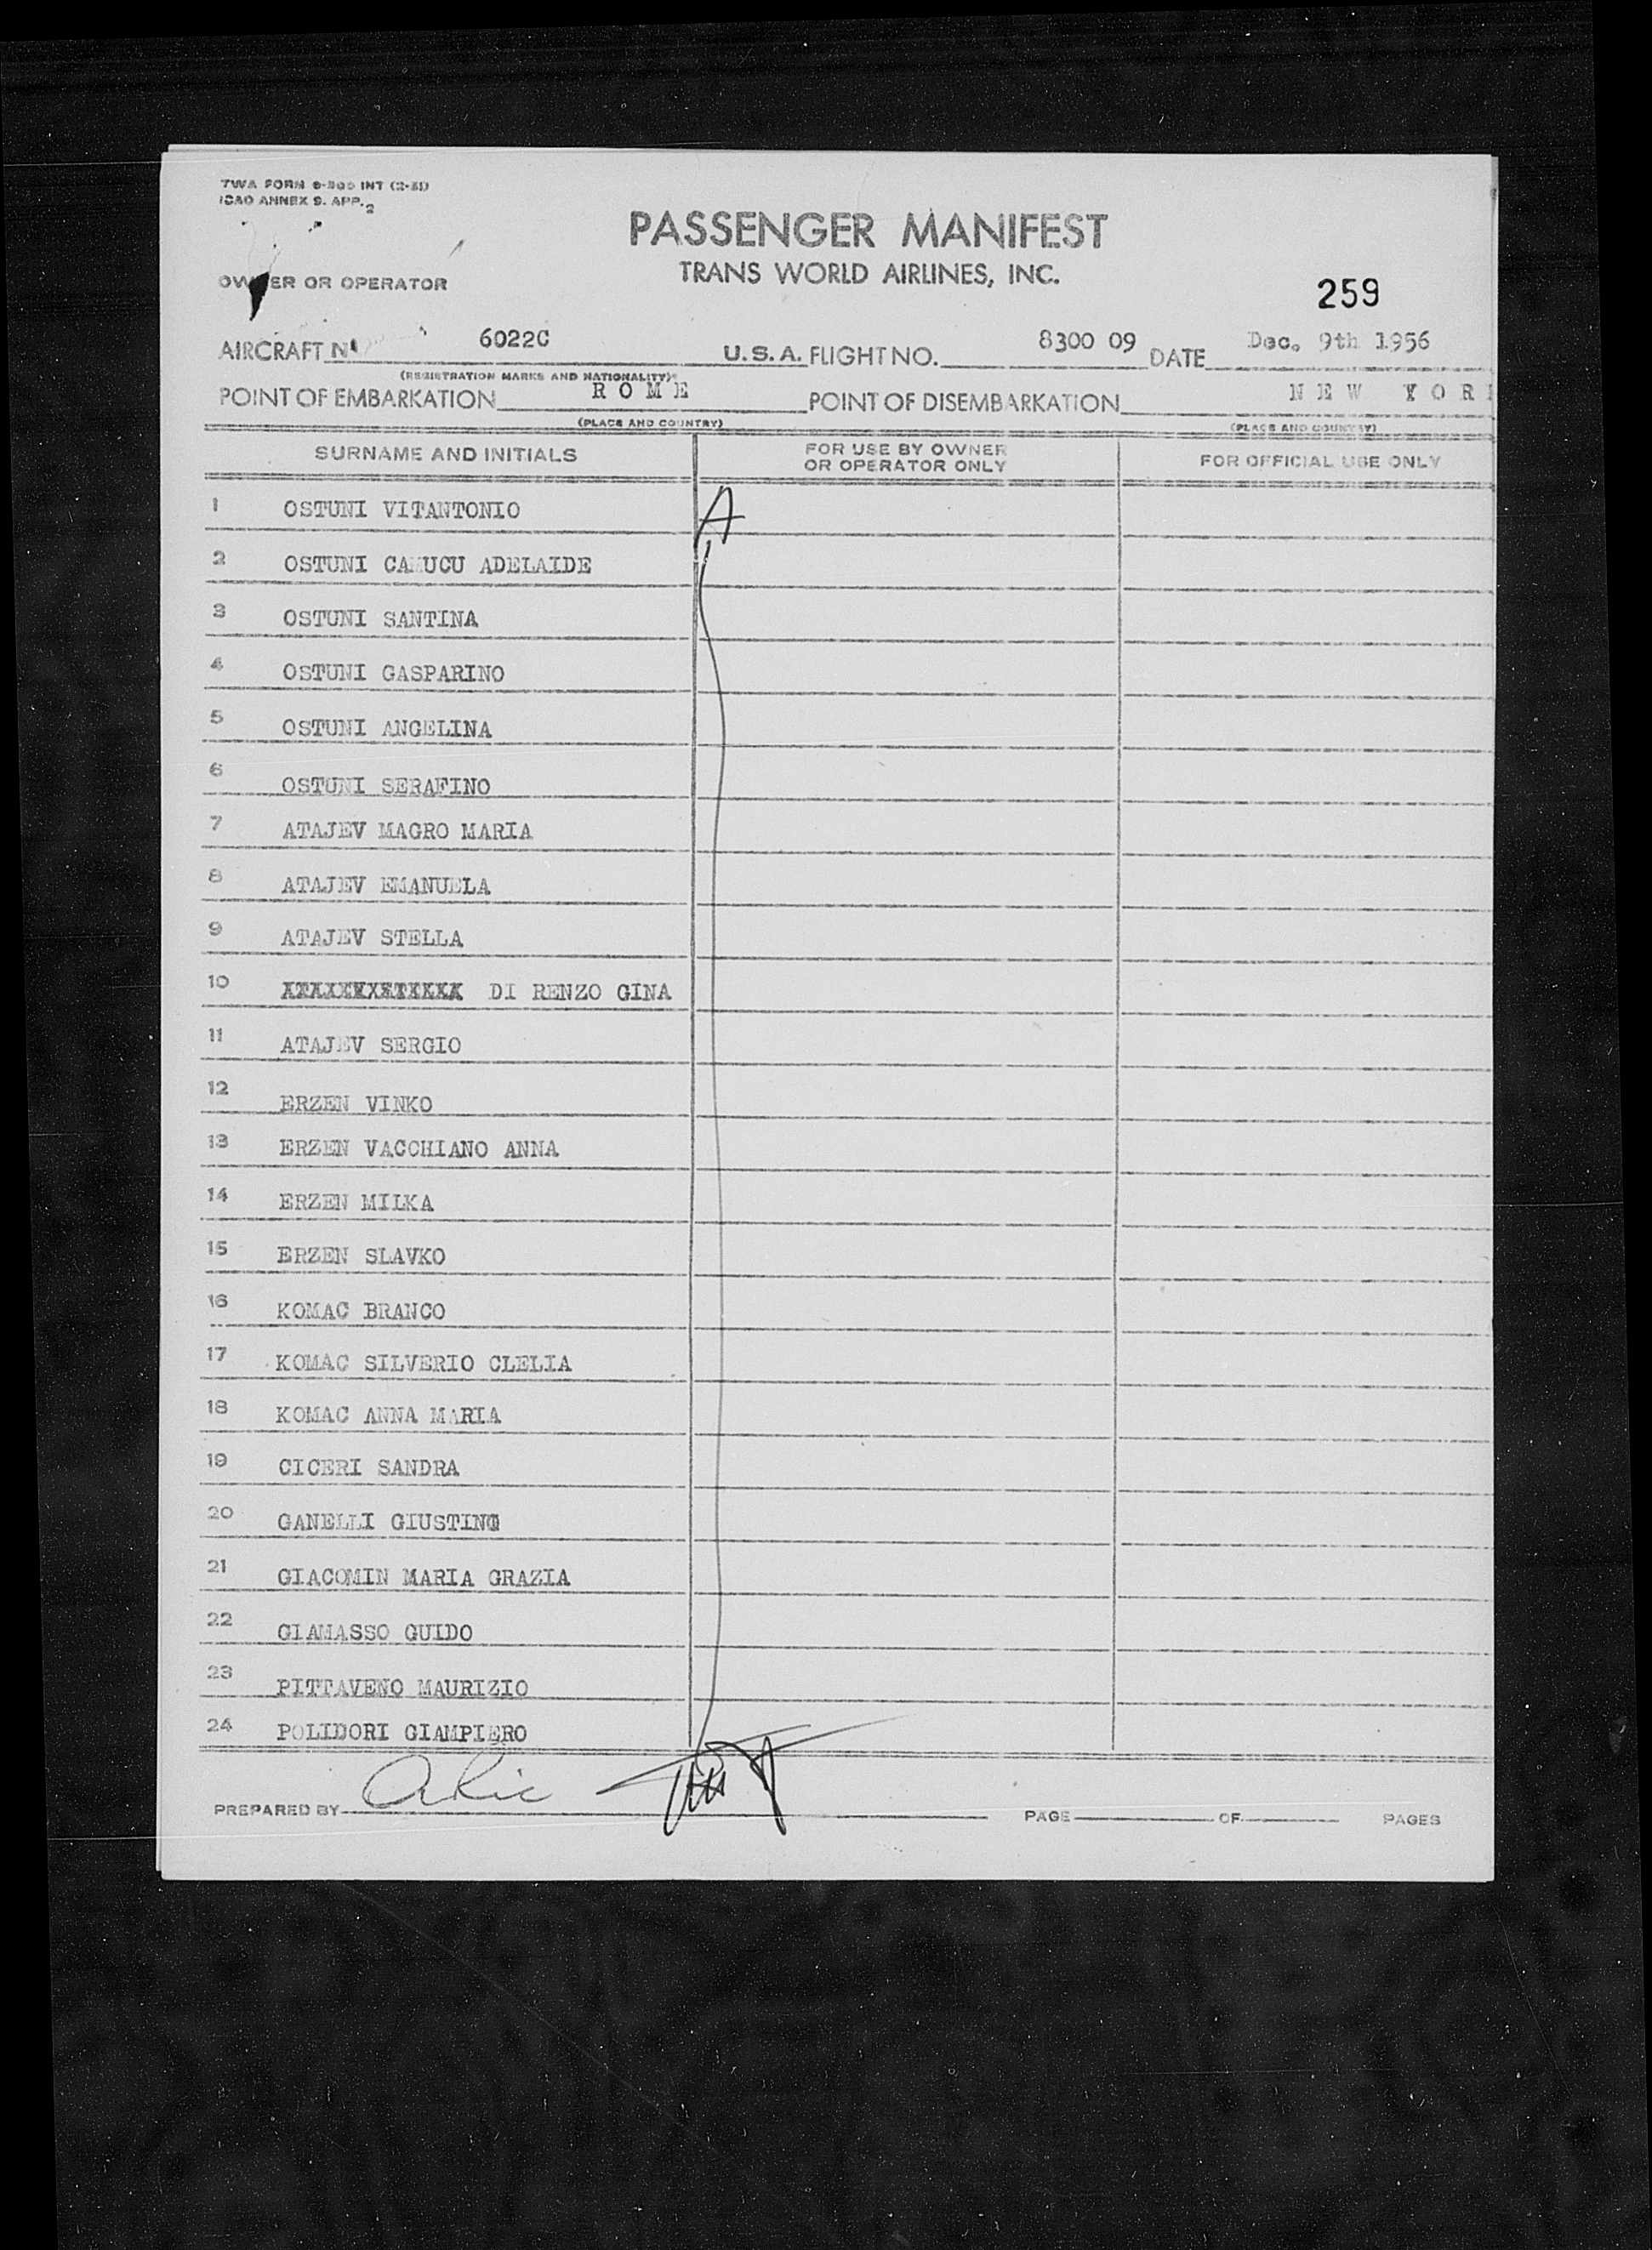 TWA FORM 6-300 INT (2-51)
ICAO ANNEX 9. APP. 2
PASSENGER MANIFEST
TRANS WORLD AIRLINES, INC.
OWNER OR OPERATOR
259
AIRCRAFT N 6022C U.S.A. FLIGHT NO. 8300 09 DATE Dec. 9th 1956
(REGISTRATION MARKS AND NATIONALITY)
POINT OF EMBARKATION R O M E POINT OF DISEMBARKATION N E W Y O R
(PLACE AND COUNTRY) (PLACE AND COUNTRY)
SURNAME AND INITIALS FOR USE BY OWNER OR OPERATOR ONLY FOR OFFICIAL USE ONLY
1 OSTUNI VITANTONIO A
2 OSTUNI ADELAIDE
3 OSTUNI SANTINA
4 OSTUNI GASPARINO
5 OSTUNI ANGELINA
6 OSTUNI SERAFINO
7 ATAJEV MAGRO MARIA
8 ATAJEV EMANUELA
9 ATAJEV STELLA
10 DI RENZO GINA
11 ATAJEV SERGIO
12 ERZEN VINKO
13 ERZEN VACCHIANO ANNA
14 ERZEN MILKA
15 ERZEN SLAVKO
16 KOMAC BRANCO
17 KOMAC SILVERIO CLELIA
18 KOMAC ANNA MARIA
19 CICERI SANDRA
20 GANELLI GIUSTINO
21 GIACOMIN MARIA GRAZIA
22 GIAMASSO GUIDO
23 PITTAVENO MAURIZIO
24 POLIDORI GIAMPIERO
PREPARED BY PAGE OF PAGES